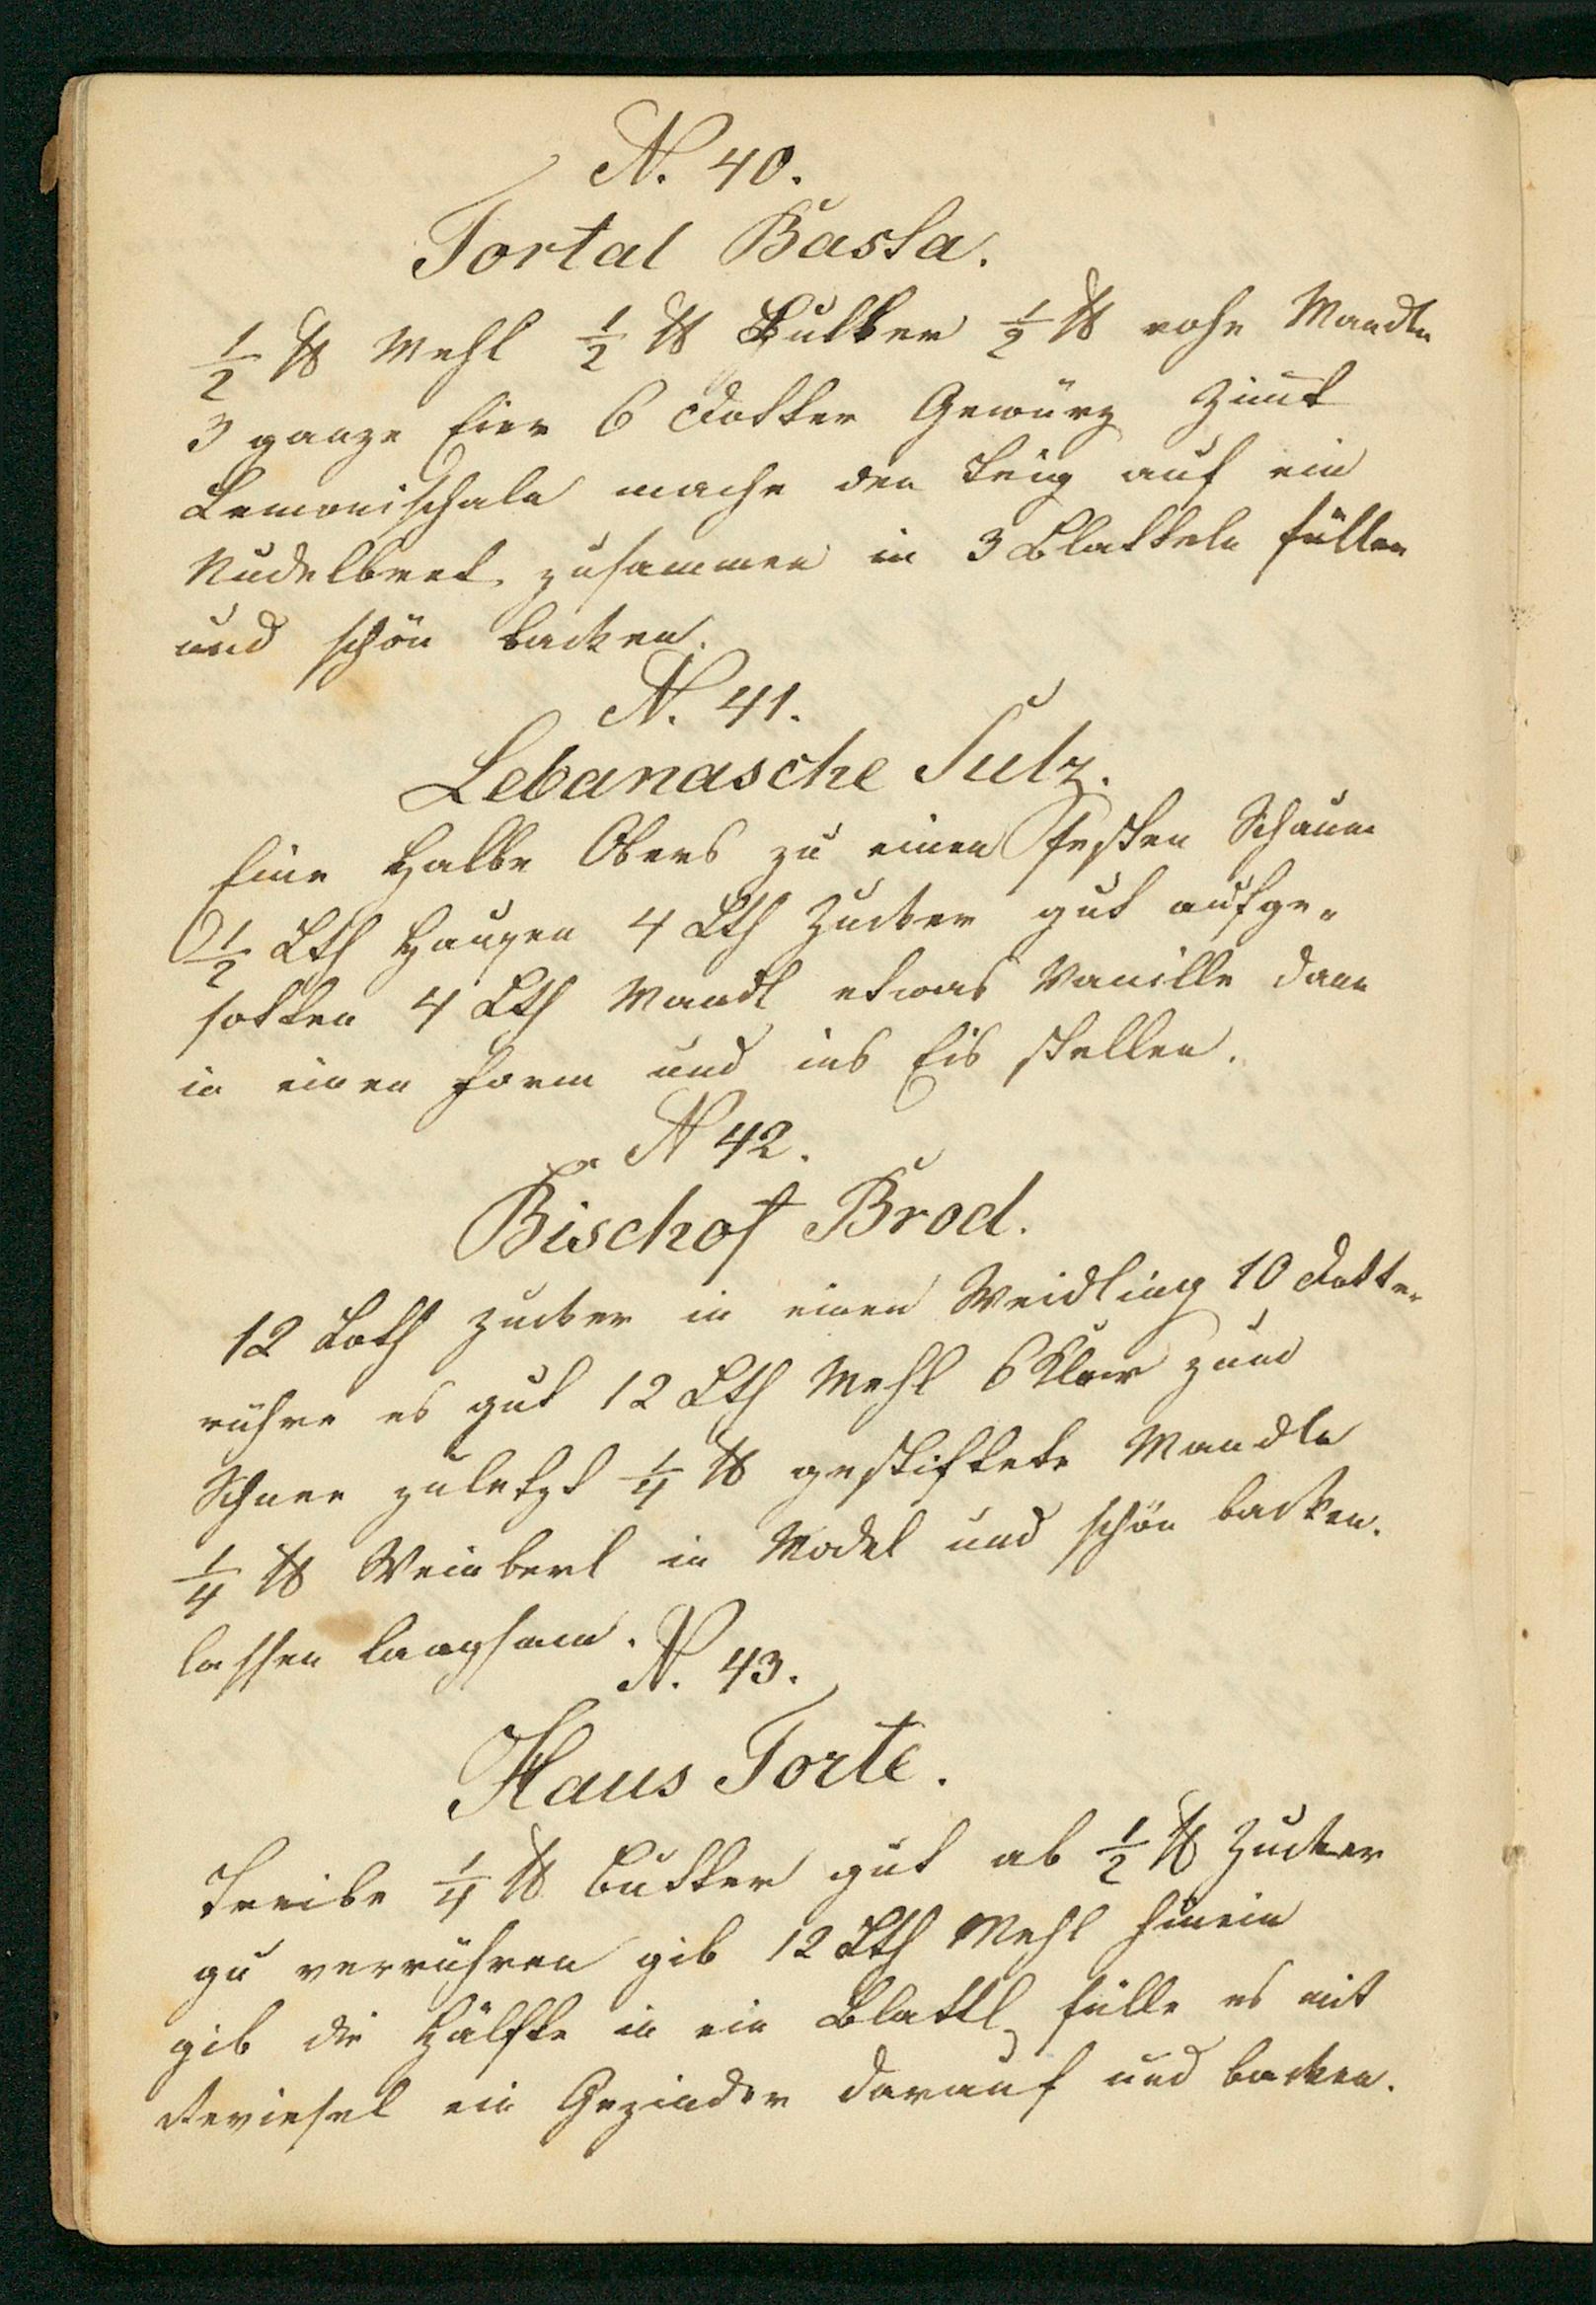 N. 40.
Tortal Bassa.
½ ℔ Mehl ½ ℔ Butter ½ ℔ rohe Mandln
3 ganze Eier 6 Dotter Gewürz Zimt
Lemonischaln mache den Teig auf ein
Nudelbret zusammen in 3 Blatteln füllen
und schön backen.
N. 41.
Lebanasche Sulz.
Eine Halbe Obers zu einen festen Schaum
½ Lth Hausen 4 Lth Zucker gut aufge-
sotten 4 Lth Mandl etwas Vanille dann
in einen Form und ins Eis stellen.
N 42.
Bischof Brod.
12 Loth Zucker in einen Weidling 10 Dotter
rühre es gut 12 Lth Mehl 6 Klar zum
Schnee zuletzt ¼ ℔ gestiftete Mandln
¼ ℔ Weinberl in Model und schön backen.
lassen langsam.
N. 43.
Haus Torte.
Treibe ¼ ℔ Butter gut ab ½ ℔ Zucker
zu verrühren gib 12 Lth Mehl hinein
gib die Hälfte in ein Blattl fülle es mit
ein darauf und backen.